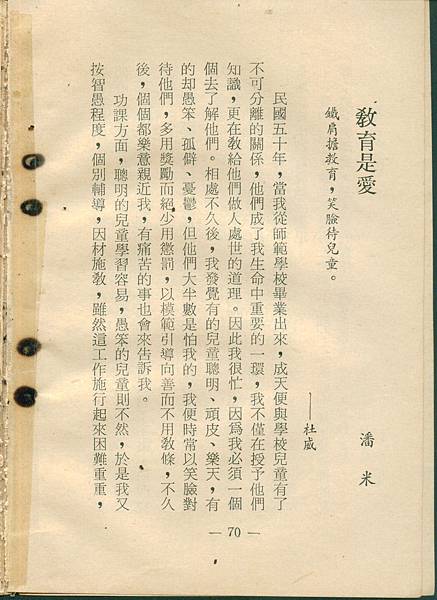 教育是愛
潘米
鐵肩擔教育，笑臉待兒童。
——杜威
民國五十年，當我從師範學校畢業出來，成天便與學校兒童有了
不可分離的關係，他們成了我生命中重要的一環，我不僅在授予他們
知識，更在敎給他們做人處世的道理。因此我很忙，因爲我必須一個
個去了解他們。相處不久後，我發覺有的兒童聰明、頑皮、樂天，有
的却愚笨、孤僻、憂鬱，但他們大半數是怕我的，我便時常以笑臉對
待他們，多用獎勵而絕少用懲罰，以模範引導向善而不用敎條，不久
後，個個都樂意親近我，有痛苦的事也會來告訴我。
功課方面，聰明的兒童學習容易，愚笨的兒童則不然，於是我又
按智愚程度，個別輔導，因材施敎，雖然這工作施行起來困難重重，
— 70 —